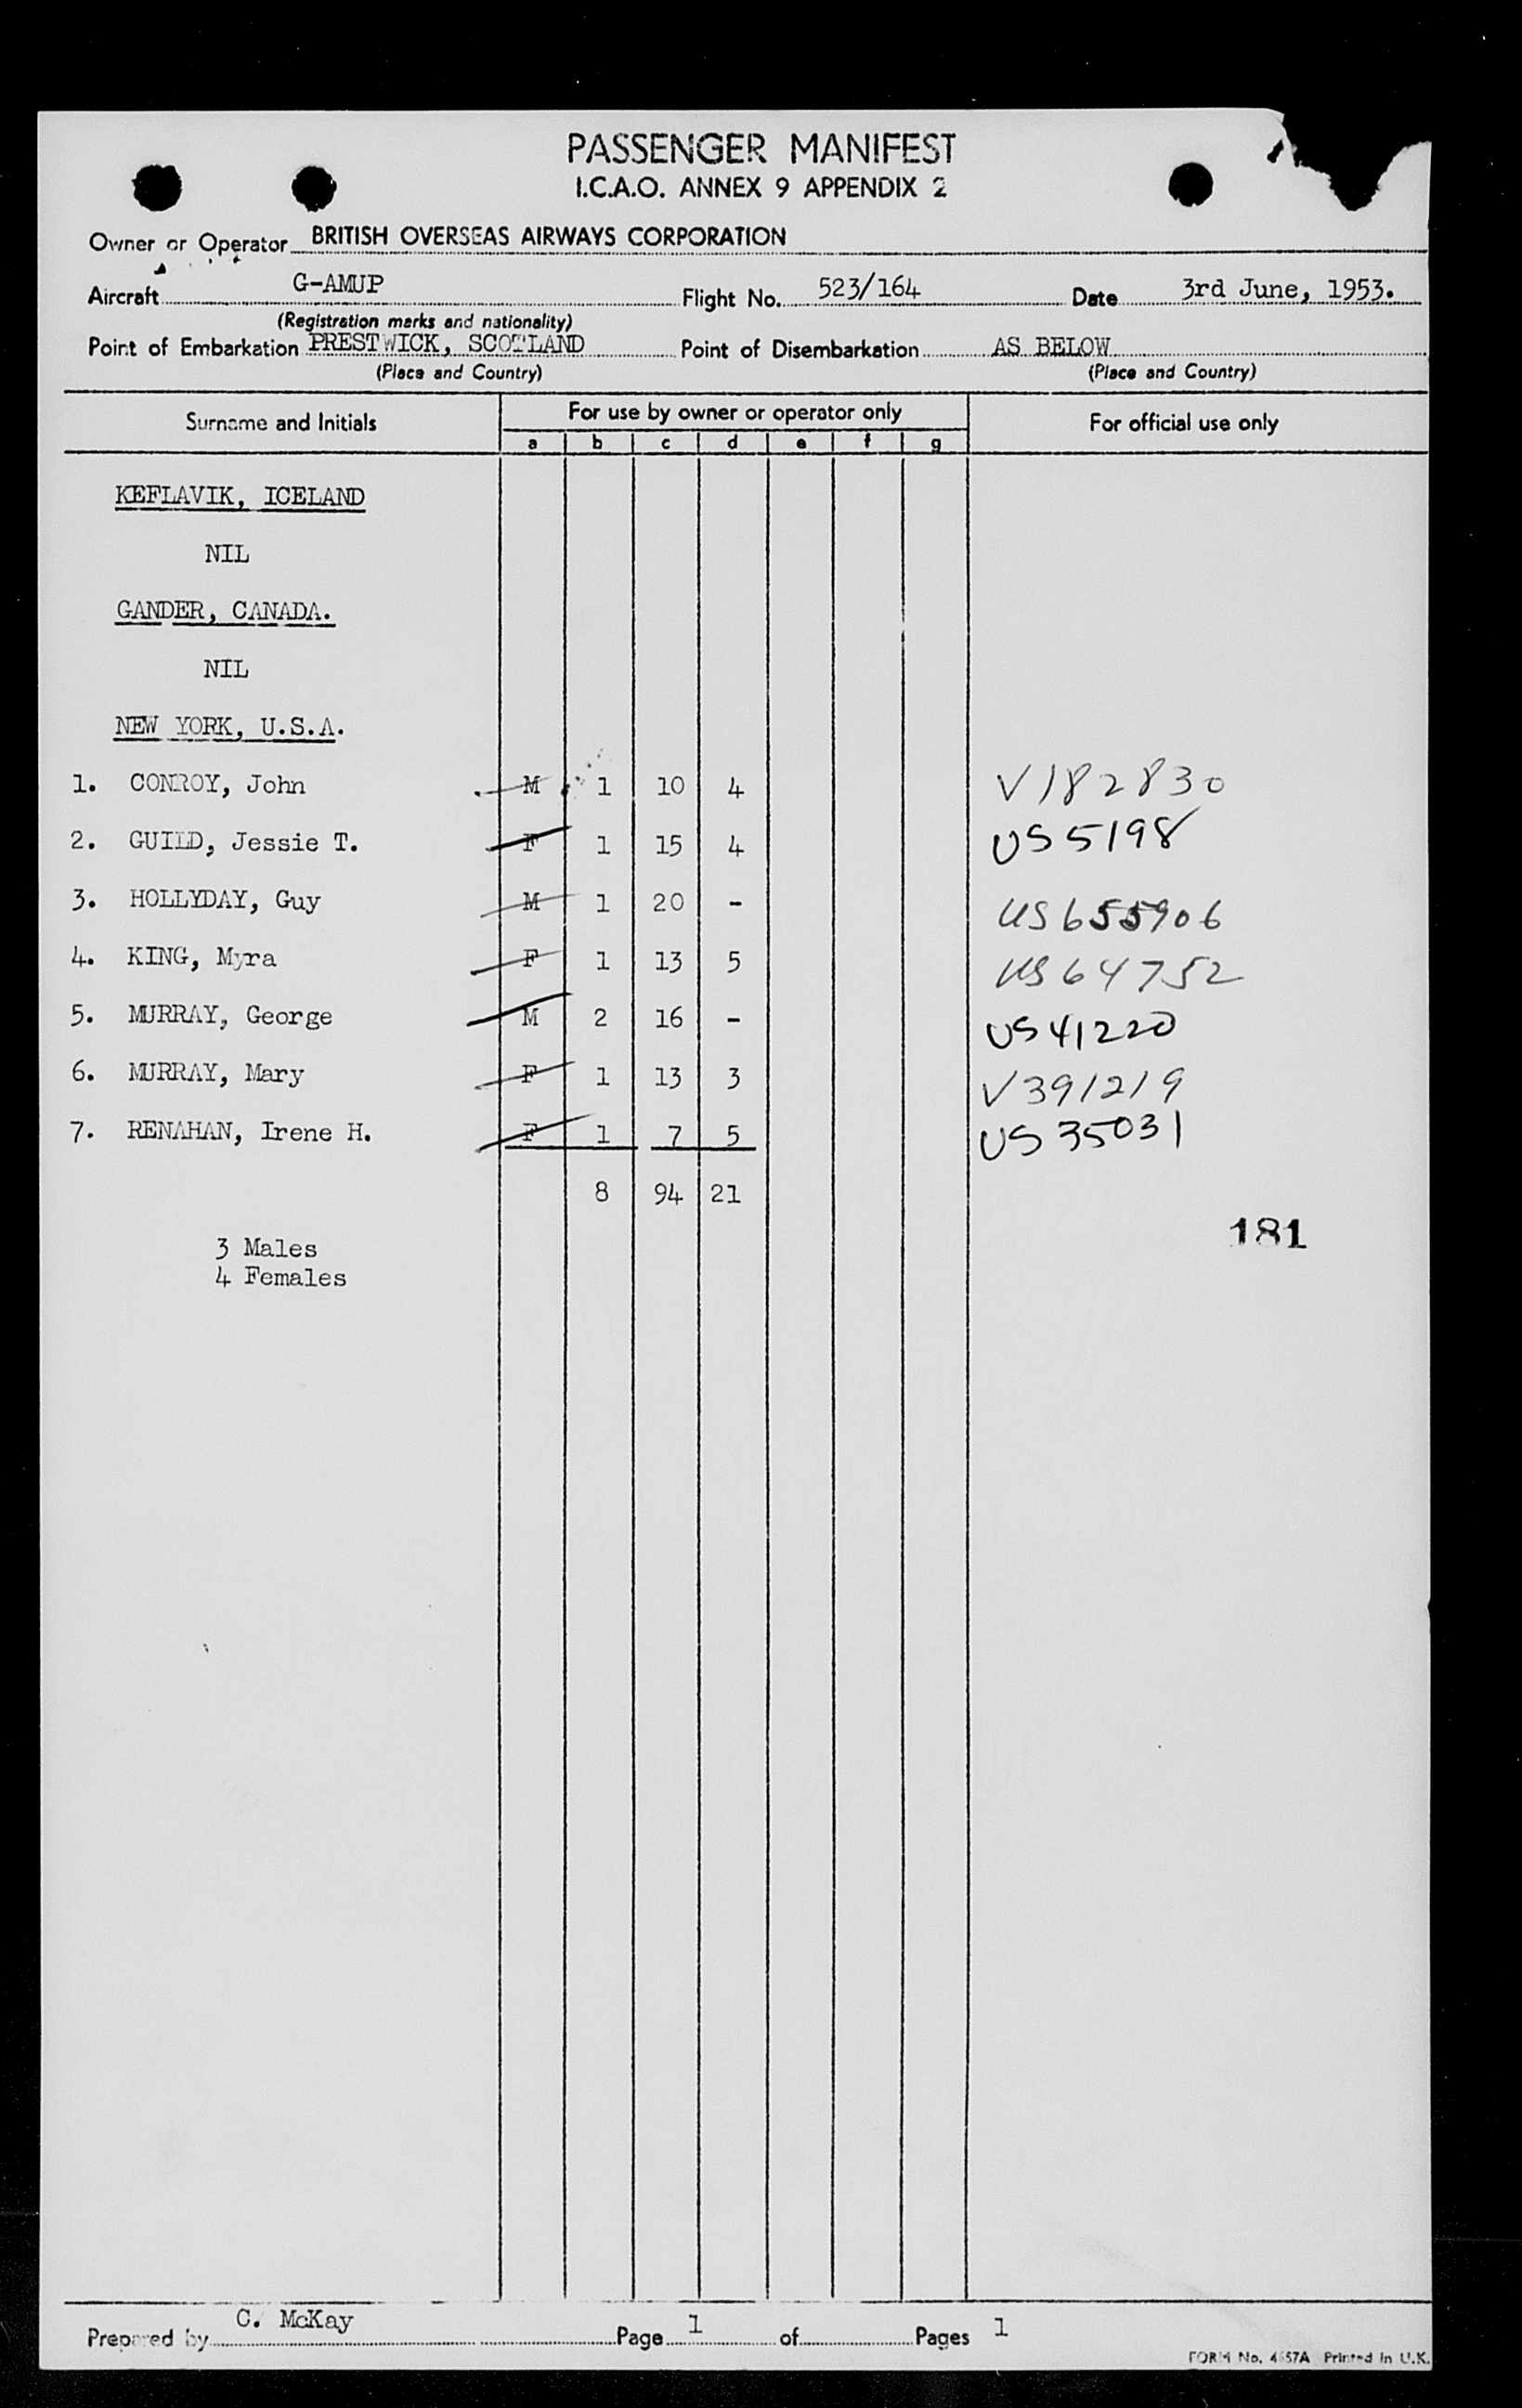 PASSENGER MANIFEST
I.C.A.O. ANNEX 9 APPENDIX 2
Owner or Operator BRITISH OVERSEAS AIRWAYS CORPORATION
Aircraft G-AMUP Flight No. 523/164 Date 3rd June, 1953.
(Registration marks and nationality)
Point of Embarkation PRESTWICK, SCOTLAND Point of Disembarkation AS BELOW
(Place and Country) (Place and Country)
Surname and Initials For use by owner or operator only For official use only
a b c d e f g
KEFLAVIK, ICELAND
NIL
GANDER, CANADA.
NIL
NEW YORK, U.S.A.
1. CONROY, John M 1 10 4 V182830
2. GUILD, Jessie T. F 1 15 4 US5198
3. HOLLYDAY, Guy M 1 20 - US655906
4. KING, Myra F 1 13 5 US64752
5. MURRAY, George M 2 16 - US41220
6. MURRAY, Mary F 1 13 3 V391219
7. RENAHAN, Irene H. F 1 7 5 US35031
8 94 21
181
3 Males
4 Females
Prepared by C. McKay Page 1 of Pages 1
FORM No. 4557A Printed in U.K.